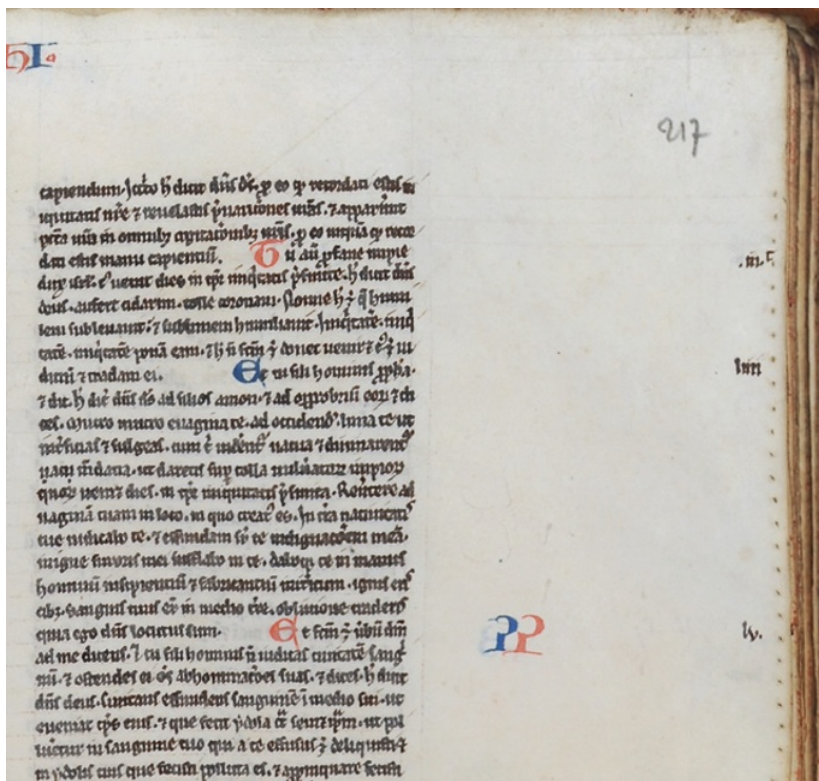 hIa
217
capiendum. Iccirco h dicit dñs ds. ꝓ eo ꝙ recordati estis in
iquitatis nre ⁊ revelastis p̃varicõnes vr̃as. ⁊ apparuerunt
pctã vr̃a in omnibꝫ cogitacõnibꝫ vr̃is. ꝓ eo inquã ꝙ recor
dati estis manu capiemini. Tu aũ ꝓfane impie
dux isrl. cꝰ venit dies in tꝑe iniq̃tatis p̃finite. h dicit dñs
deus. aufert cidarim. tolle coronam. Nonne h ẽ q̃ humi
lem sublevavit. ⁊ sublimem humiliavit. Iniq̃tatẽ. iniq̃
tatẽ. iniq̃tatẽ ponã eam. ⁊ h ñ fcm̃ ẽ donec veniret cꝰ ẽ iu
diciũ ⁊ tradam ei. Et tu fili hominis ꝓph̃a.
⁊ dic. h dic̃ dñs ds ad filios amon. ⁊ ad opprobriũ eoꝝ ⁊ di
ces. Mucro mucro evagina te. ad occidendũ. lima te ut
int̃ficias ⁊ fulgeas. cum t̃ viderentˀ vana ⁊ divinarentˀ
mẽdacia. ut dareris suꝑ colla vulneratoꝝ impioꝝ
q̃noꝝ venit dies. in tꝑe iniquitatis p̃finita. Revertere ad
vaginã tuam in loco. in quo creatˀ es. In tr̃a nativitatis
tue iudicabo te. ⁊ effundam sup̃ te indignacõnem meã.
in igne furoris mei sufflabo in te. daboqꝫ te in manus
hominũ insipientiũ ⁊ fabricantiũ interitum. igni eris
cibꝰ. sanguis tuus erit in medio t̃re. oblivione traderis
quia ego dñs locutus sum. Et fcm̃ ẽ v̉bũ dñi
ad me dicens. ⁊ tu fili hominis ñ iudicas civitatẽ sang̃
nũ. ⁊ ostendes ei õs abhominacõnes suas. ⁊ dices. h dicit
dñs deus. Civitas effundens sanguinẽ ĩ medio sui. ut
veniat tp̃s eius. ⁊ que fecit ydola cõtra semetip̃m. ut pol
luetur in sanguine tuo qui a te effusus ẽ deliquisti ⁊
in ydolis tuis que fecisti polluta es. ⁊ appinquare fecisti
.iii.
iiii
v.